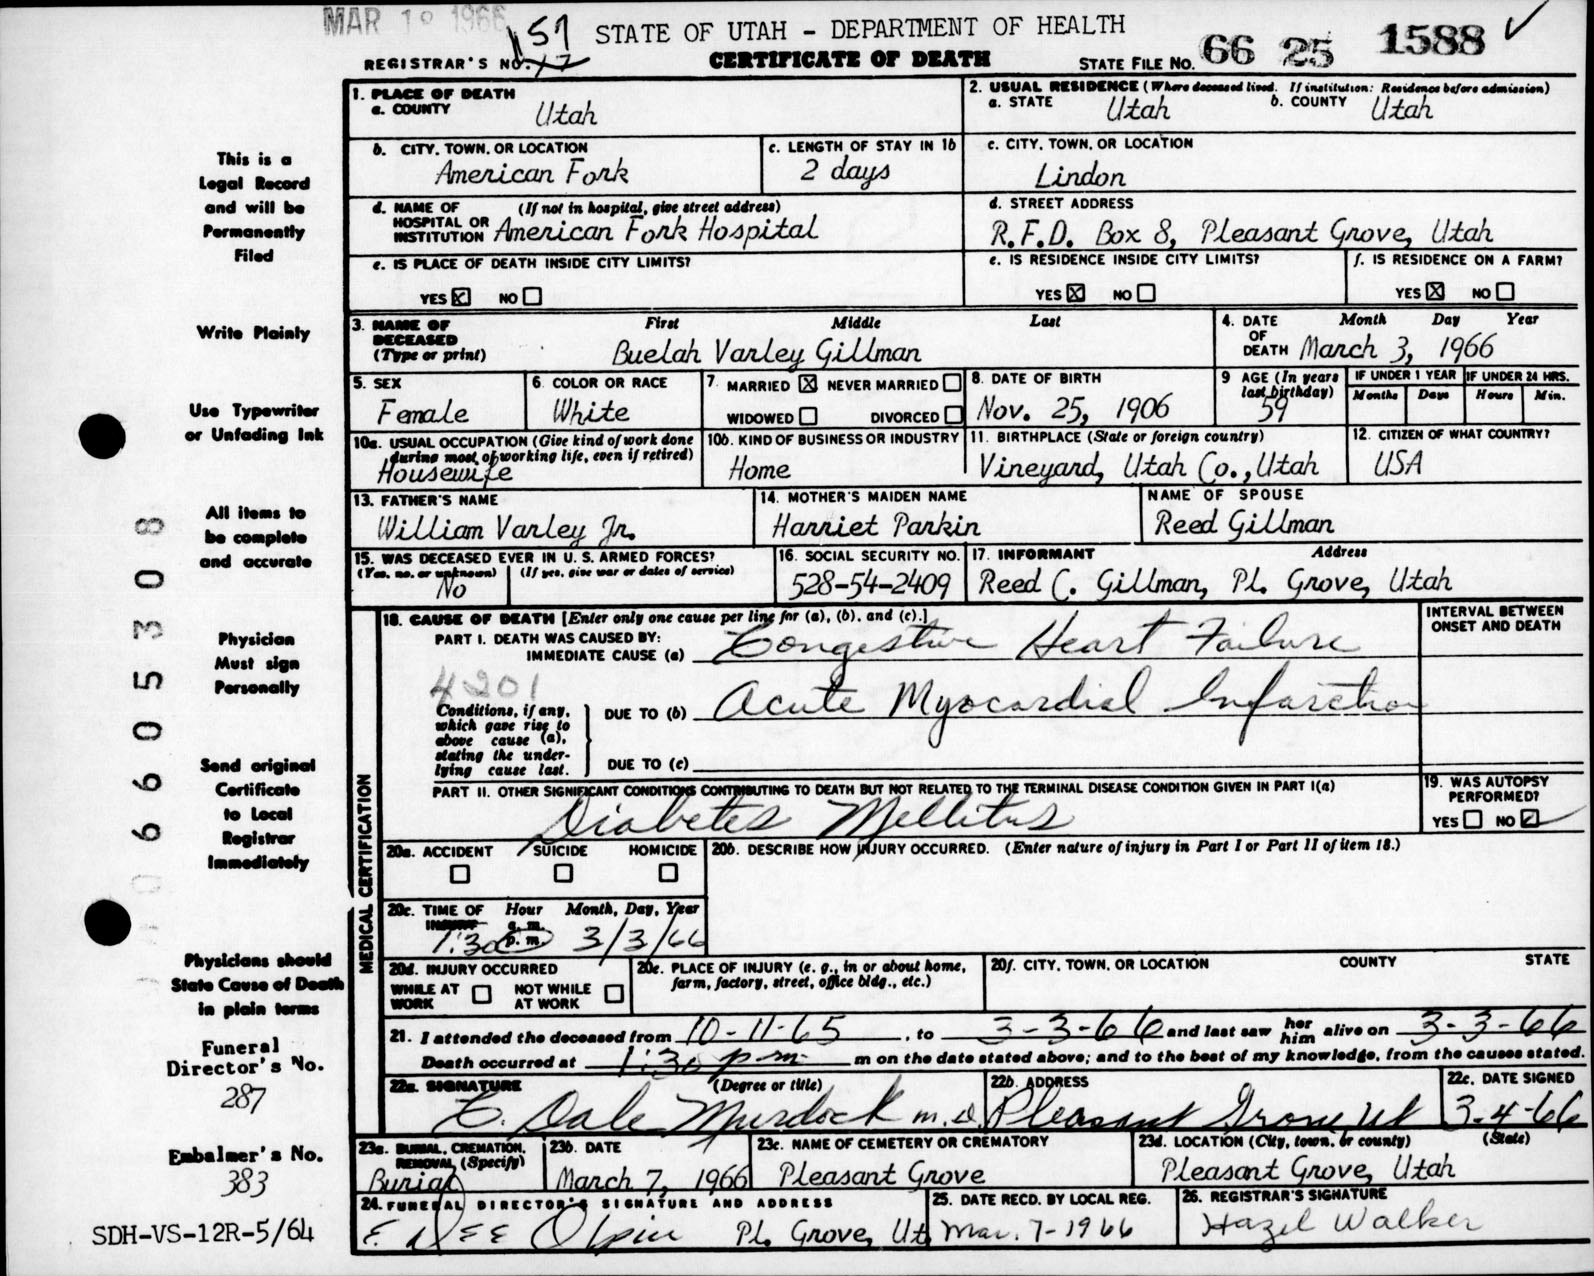 MAR 18 1966
STATE OF UTAH - DEPARTMENT OF HEALTH
REGISTRAR'S NO. 157 17
CERTIFICATE OF DEATH
STATE FILE NO. 66 25 1588 ✓
1. PLACE OF DEATH
a. COUNTY Utah
2. USUAL RESIDENCE (Where deceased lived. If institution: Residence before admission)
a. STATE Utah b. COUNTY Utah
b. CITY, TOWN, OR LOCATION
American Fork
c. LENGTH OF STAY IN 1b
2 days
c. CITY, TOWN, OR LOCATION
Lindon
d. NAME OF (If not in hospital, give street address)
HOSPITAL OR
INSTITUTION American Fork Hospital
d. STREET ADDRESS
R.F.D. Box 8, Pleasant Grove, Utah
e. IS PLACE OF DEATH INSIDE CITY LIMITS?
YES ☒ NO ☐
e. IS RESIDENCE INSIDE CITY LIMITS?
YES ☒ NO ☐
f. IS RESIDENCE ON A FARM?
YES ☒ NO ☐
3. NAME OF DECEASED (Type or print)
First Middle Last
Buelah Varley Gillman
4. DATE OF DEATH
Month Day Year
March 3, 1966
5. SEX
Female
6. COLOR OR RACE
White
7. MARRIED ☒ NEVER MARRIED ☐
WIDOWED ☐ DIVORCED ☐
8. DATE OF BIRTH
Nov. 25, 1906
9 AGE (In years last birthday)
59
IF UNDER 1 YEAR
Months Days
IF UNDER 24 HRS.
Hours Min.
10a. USUAL OCCUPATION (Give kind of work done
during most of working life, even if retired)
Housewife
10b. KIND OF BUSINESS OR INDUSTRY
Home
11. BIRTHPLACE (State or foreign country)
Vineyard, Utah Co., Utah
12. CITIZEN OF WHAT COUNTRY?
USA
13. FATHER'S NAME
William Varley Jr.
14. MOTHER'S MAIDEN NAME
Harriet Parkin
NAME OF SPOUSE
Reed Gillman
15. WAS DECEASED EVER IN U. S. ARMED FORCES?
(Yes, no, or unknown) (If yes, give war or dates of service)
No
16. SOCIAL SECURITY NO.
528-54-2409
17. INFORMANT Address
Reed C. Gillman, Pl. Grove, Utah
MEDICAL CERTIFICATION
18. CAUSE OF DEATH [Enter only one cause per line for (a), (b), and (c).]
INTERVAL BETWEEN
ONSET AND DEATH
PART I. DEATH WAS CAUSED BY:
IMMEDIATE CAUSE (a) Congestive Heart Failure
4201
Conditions, if any,
which gave rise to
above cause (a),
stating the under-
lying cause last.
DUE TO (b) Acute Myocardial Infarction
DUE TO (c)
PART II. OTHER SIGNIFICANT CONDITIONS CONTRIBUTING TO DEATH BUT NOT RELATED TO THE TERMINAL DISEASE CONDITION GIVEN IN PART I(a)
Diabetes Mellitus
19. WAS AUTOPSY
PERFORMED?
YES ☐ NO ☑
20a. ACCIDENT SUICIDE HOMICIDE
☐ ☐ ☐
20b. DESCRIBE HOW INJURY OCCURRED. (Enter nature of injury in Part I or Part II of item 18.)
20c. TIME OF INJURY
Hour Month, Day, Year
a. m.
1:30 p. m. 3/3/66
20d. INJURY OCCURRED
WHILE AT WORK ☐ NOT WHILE AT WORK ☐
20e. PLACE OF INJURY (e. g., in or about home,
farm, factory, street, office bldg., etc.)
20f. CITY, TOWN, OR LOCATION COUNTY STATE
21. I attended the deceased from 10-11-65, to 3-3-66 and last saw her him alive on 3-3-66
Death occurred at 1:30 p m m on the date stated above; and to the best of my knowledge, from the causes stated.
22a. SIGNATURE (Degree or title)
C. Dale Murdock M.D.
22b. ADDRESS
Pleasant Grove, Ut
22c. DATE SIGNED
3-4-66
23a. BURIAL, CREMATION,
REMOVAL (Specify)
Burial
23b DATE
March 7, 1966
23c. NAME OF CEMETERY OR CREMATORY
Pleasant Grove
23d. LOCATION (City, town, or county) (State)
Pleasant Grove, Utah
24. FUNERAL DIRECTOR'S SIGNATURE AND ADDRESS
Olpin Pl. Grove, Ut.
25. DATE RECD. BY LOCAL REG.
Mar. 7-1966
26. REGISTRAR'S SIGNATURE
Hazel Walker
This is a
Legal Record
and will be
Permanently
Filed
Write Plainly
Use Typewriter
or Unfading Ink
All items to
be complete
and accurate
Physician
Must sign
Personally
Send original
Certificate
to Local
Registrar
Immediately
Physicians should
State Cause of Death
in plain terms
Funeral
Director's No.
287
Embalmer's No.
383
SDH-VS-12R-5/64
006605308